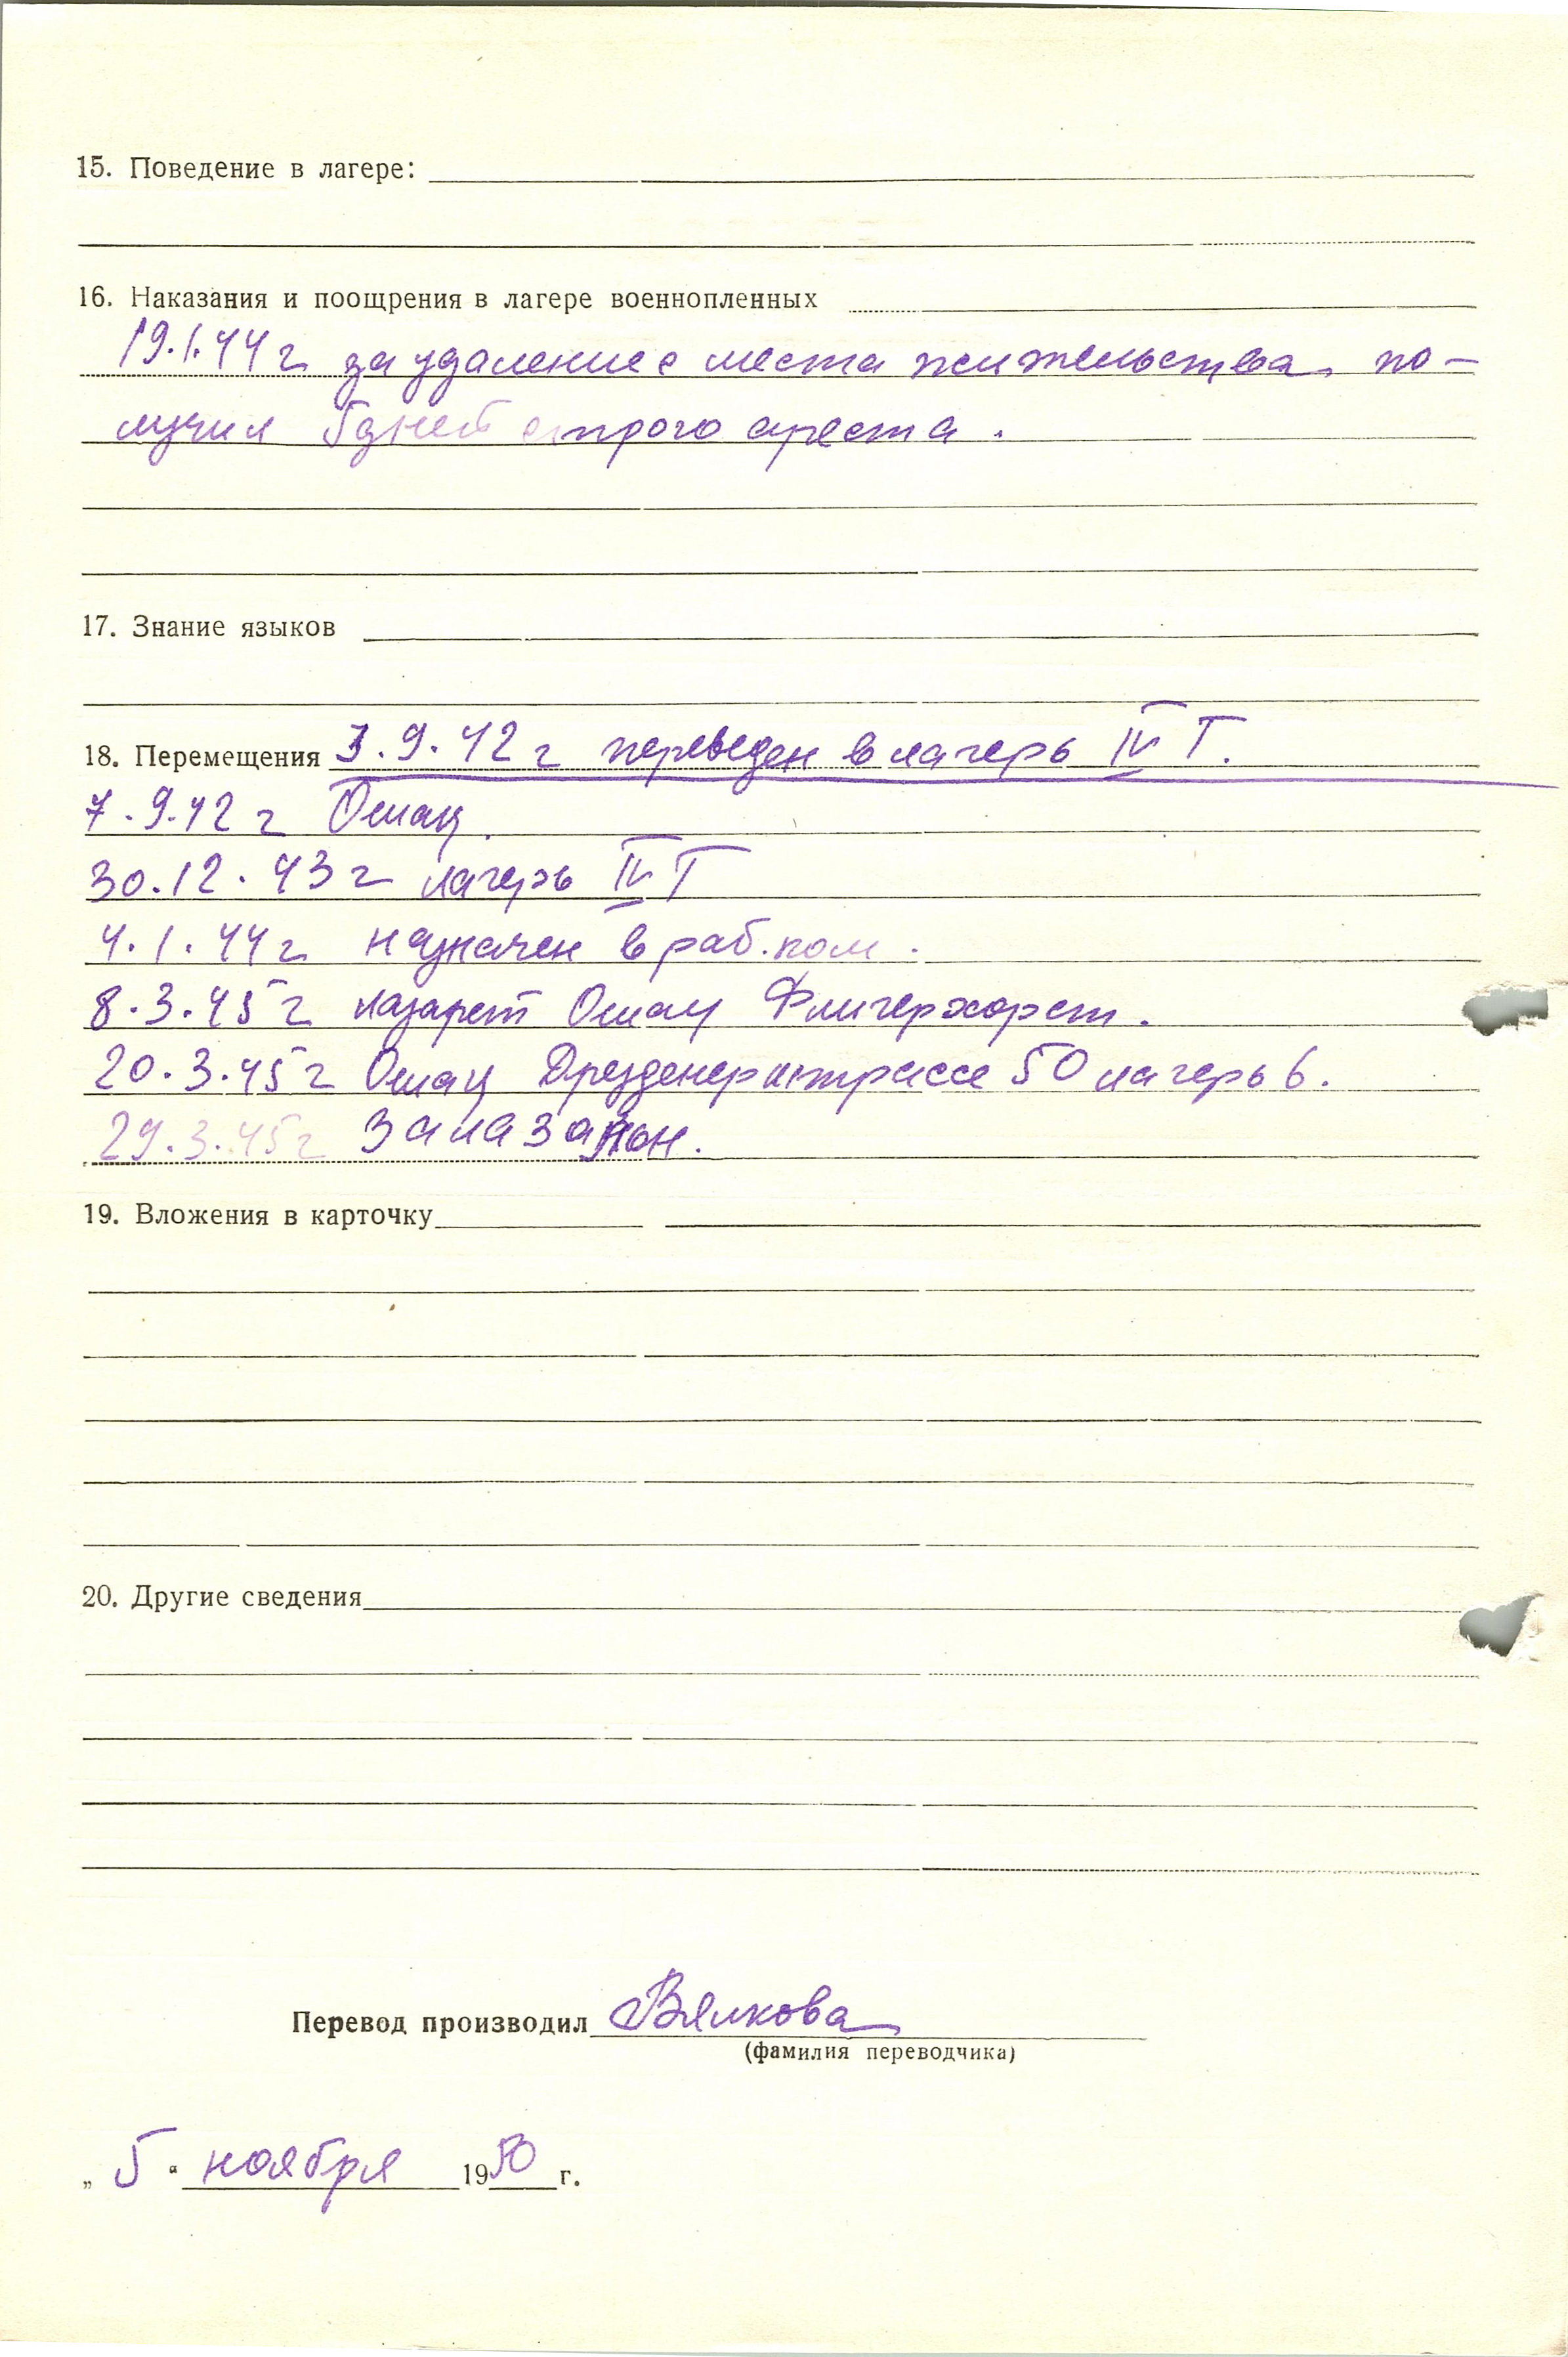 15. Поведение в лагере:
16. Наказания и поощрения в лагере военнопленных
19.1.44 г за удаление с места жительства по-
лучил 5 дней строго ареста.
17. Знание языков
18. Перемещения 3.9.42 г переведен в лагерь IV Г.
7.9.42 г Ошац.
30.12.43 г лагерь IV Г
4.1.44 г назначен в раб.ком.
8.3.45 г лазарет Ошац Флигерхорст.
20.3.45 г Ошац Дрезденерштрассе 50 лагерь 6.
29.3.45 г
19. Вложения в карточку
20. Другие сведения
Перевод производил Вялкова
(фамилия переводчика)
„ 5 “ ноября 1950 г.